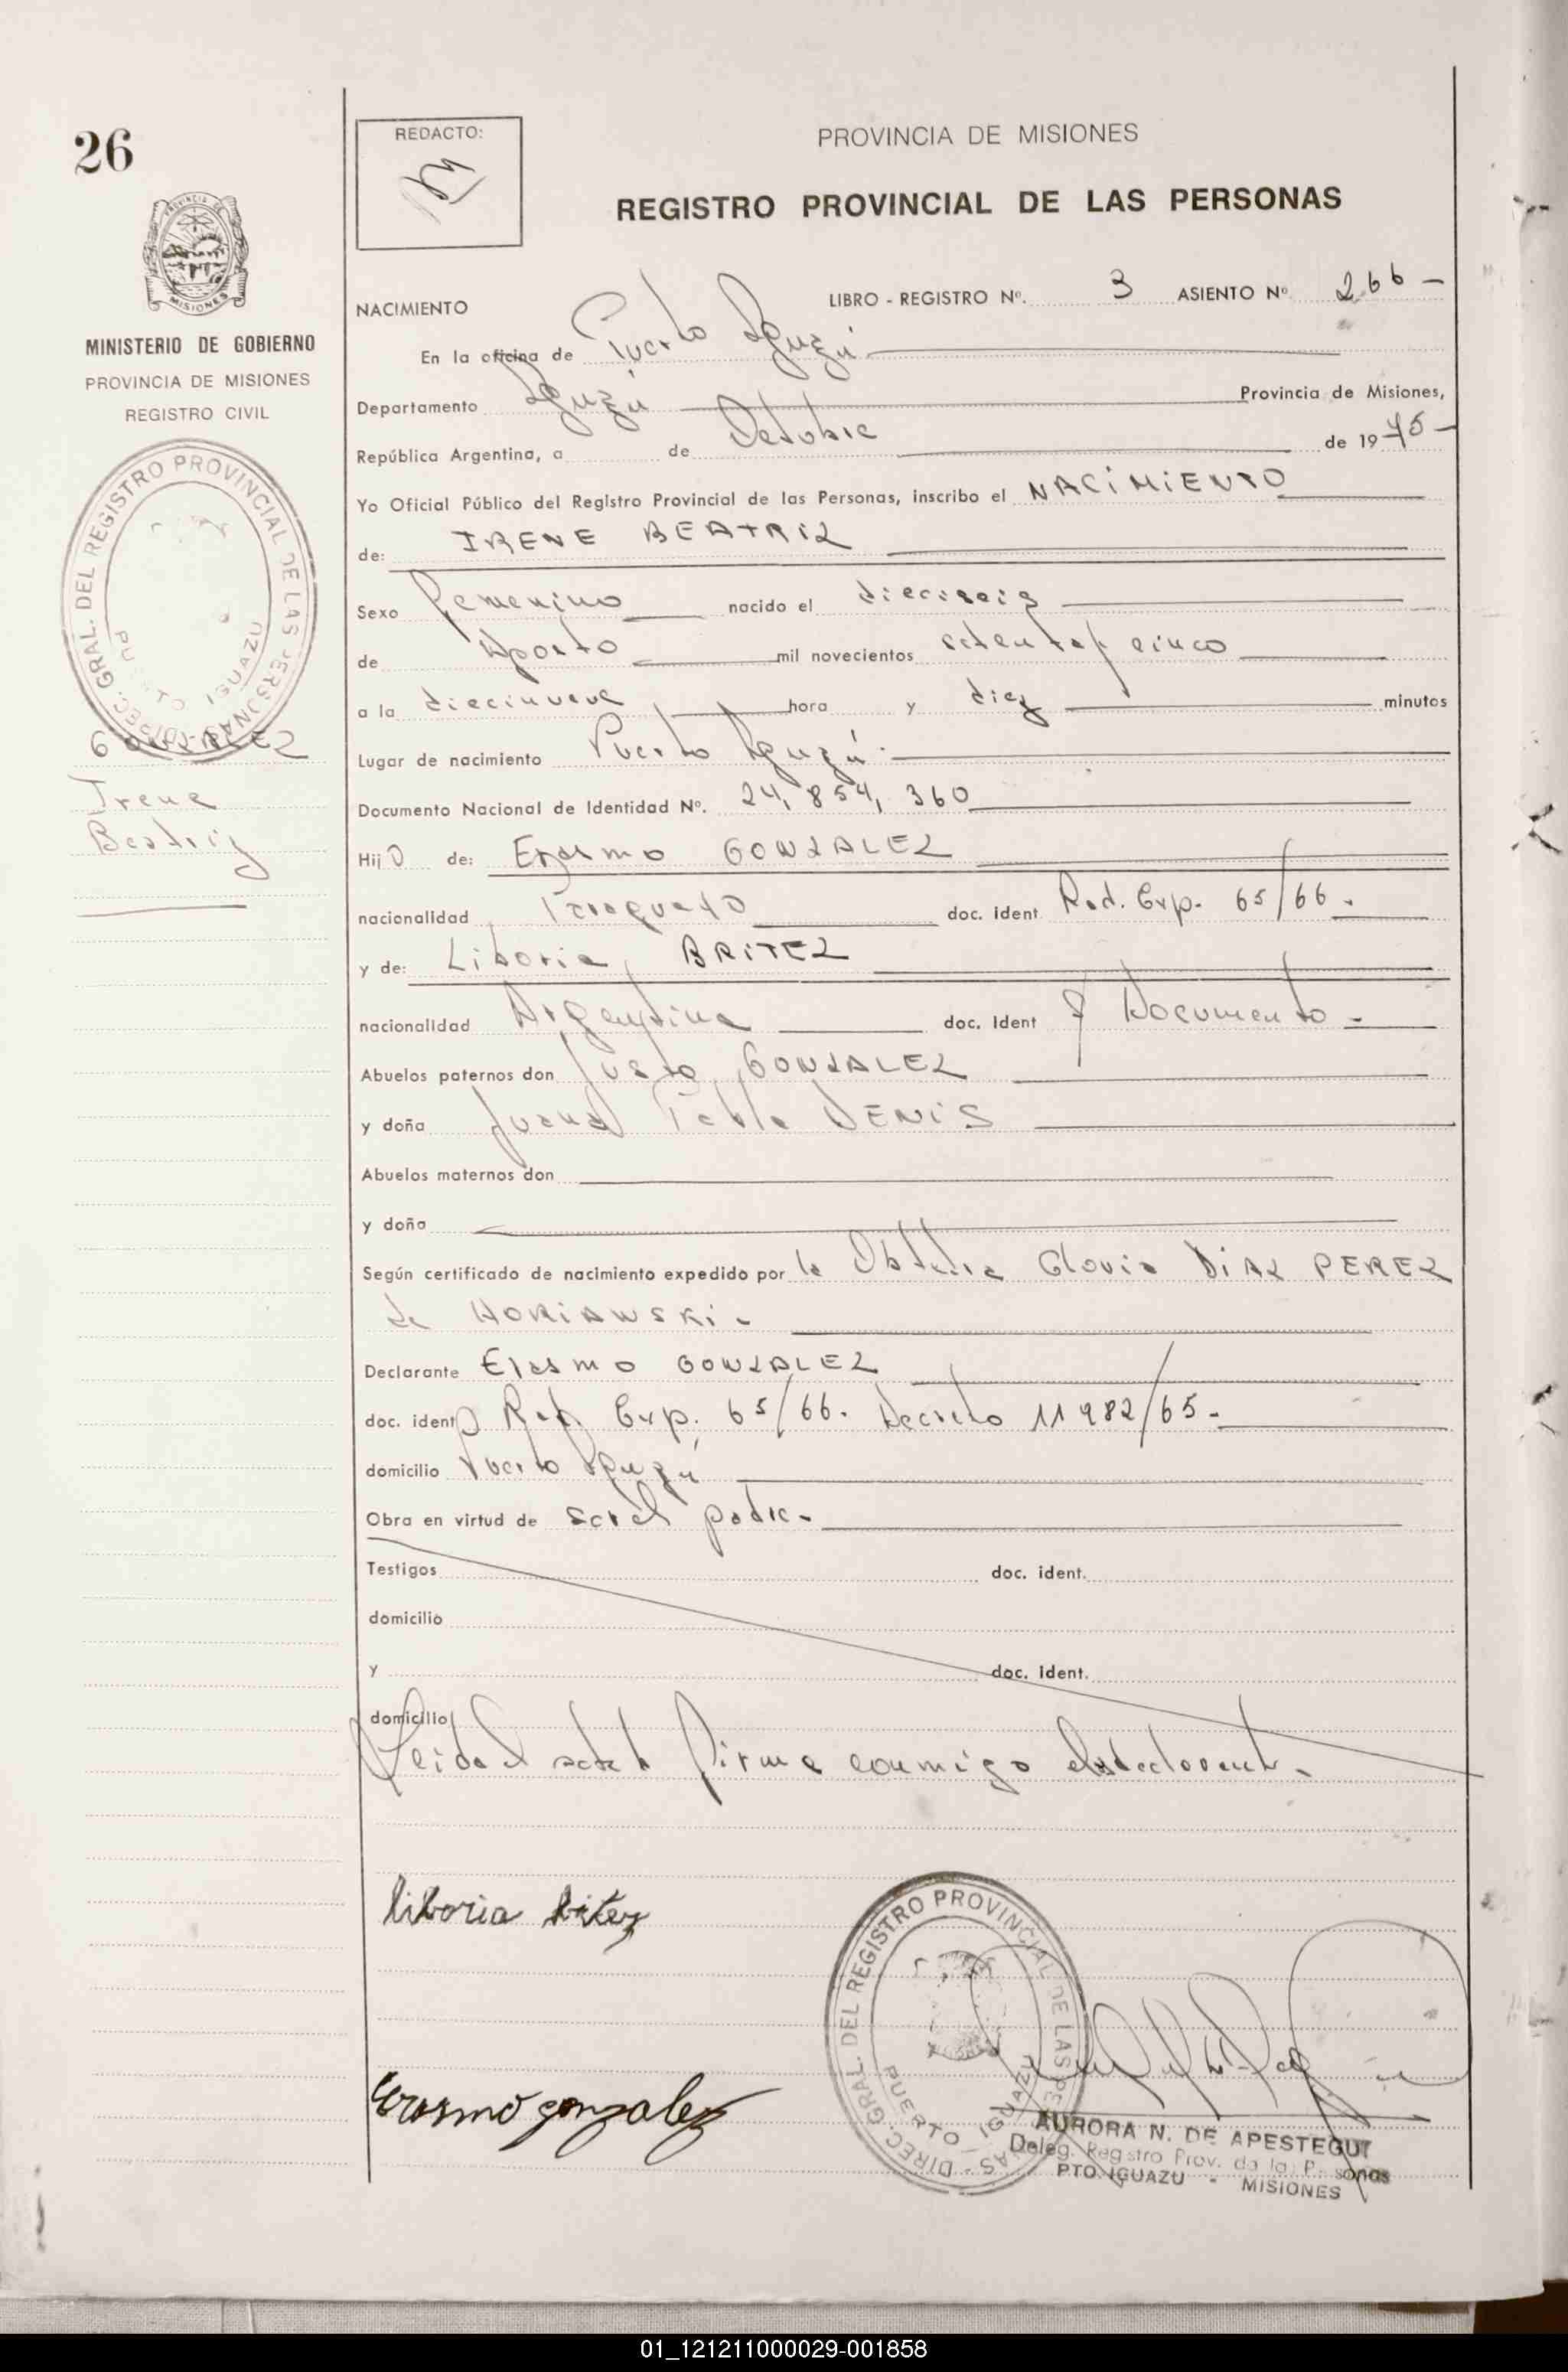 26
REDACTO:
PROVINCIA DE MISIONES
REGISTRO PROVINCIAL DE LAS PERSONAS
MISIONES
MINISTERIO DE GOBIERNO
PROVINCIA DE MISIONES
REGISTRO CIVIL
DIREC. GRAL. DEL REGISTRO PROVINCIAL DE LAS PERSONAS
PUERTO IGUAZU
GONZALEZ
Irene
Beatriz
NACIMIENTO LIBRO - REGISTRO Nº. 3 ASIENTO Nº 266 -
En la oficina de Puerto Iguazú
Departamento Iguazú Provincia de Misiones,
República Argentina, a de Octubre de 1975 -
Yo Oficial Público del Registro Provincial de las Personas, inscribo el NACIMIENTO
de: IRENE BEATRIZ
Sexo Femenino nacido el dieciseis
de Agosto mil novecientos setenta y cinco
a la diecinueve hora y diez minutos
Lugar de nacimiento Puerto Iguazú.
Documento Nacional de Identidad Nº. 24,854,360
Hij de: Erasmo GONZALEZ
nacionalidad Paraguayo doc. ident Rad. Exp. 65/66.
y de: Liboria BRITEZ
nacionalidad Argentina doc. Ident Documento -
Abuelos paternos don Justo GONZALEZ
y doña Juana Pabla DENIS
Abuelos maternos don
y doña
Según certificado de nacimiento expedido por la Obstetra Gloria DIAZ PEREZ
de HORIANSKI.
Declarante Erasmo GONZALEZ
doc. ident Rad. Exp. 65/66. Decreto 11982/65.
domicilio Puerto Iguazú
Obra en virtud de ser el padre.
Testigos doc. ident.
domicilio
y doc. ident.
domicilio
Leida el acta la firma conmigo el declarante.
liboria britez
DIREC. GRAL. DEL REGISTRO PROVINCIAL DE LAS PERSONAS
PUERTO IGUAZU
Erasmo gonzalez
AURORA N. DE APESTEGUI
Deleg. Registro Prov. de las Personas
PTO. IGUAZU - MISIONES
01_121211000029-001858